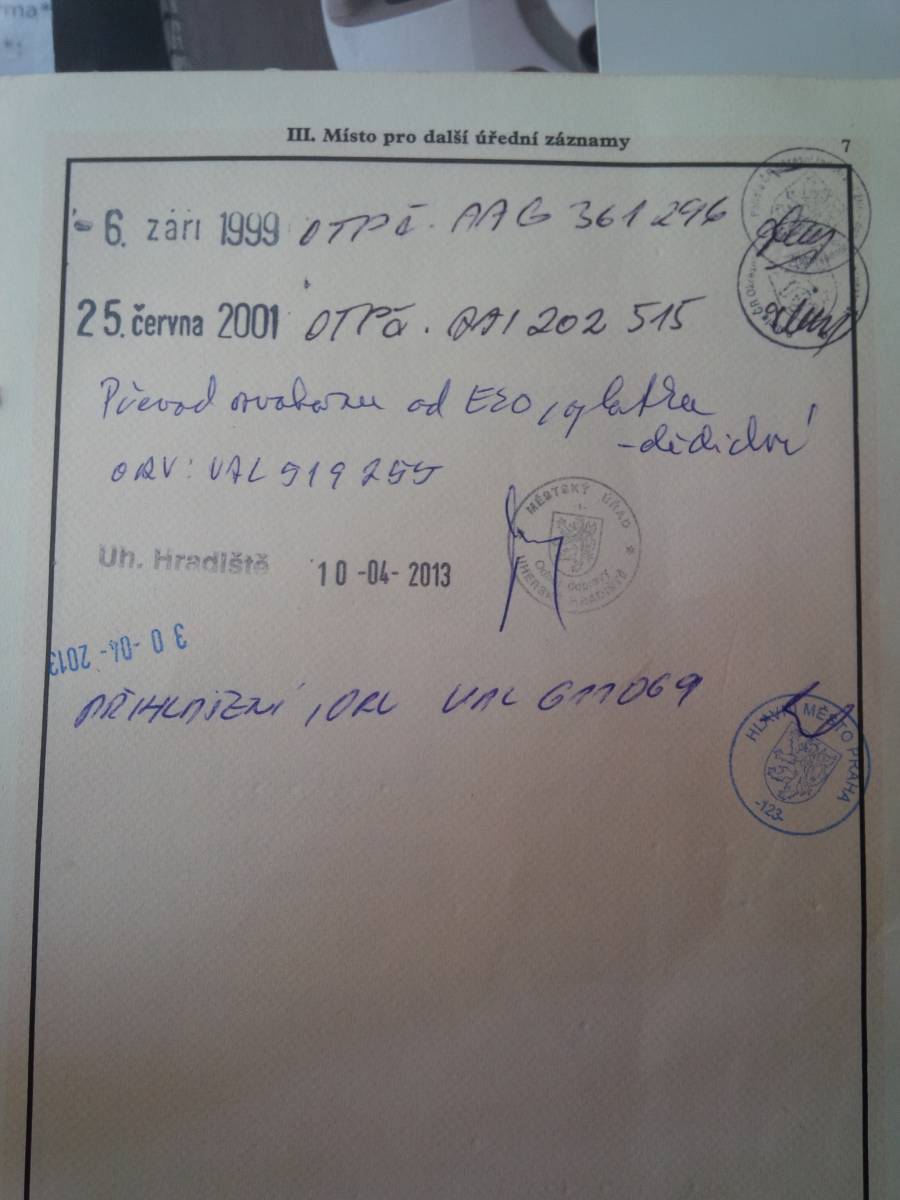 rma*
*:
III. Místo pro další úřední záznamy 7
- 6. září 1999 OTPč. AAG 361 296
25. června 2001 OTPč. AAI 202 515
Převod od
- dědictví
ORV: UAL 919255
MĚSTSKÝ ÚŘAD
-1-
Odbor dopravy
UHERSKÉ HRADIŠTĚ *
Uh. Hradiště 10 -04- 2013
30 -04- 2013
PŘIHLÁŠENÍ, UAL 611069
HLAVNÍ MĚSTO PRAHA
-123-